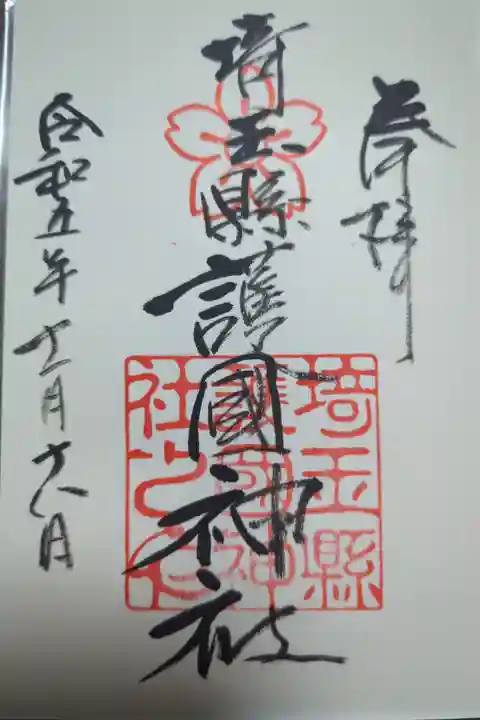 奉拝
埼玉縣護國神社
埼玉縣護國神社之印
令和五年十一月十八日